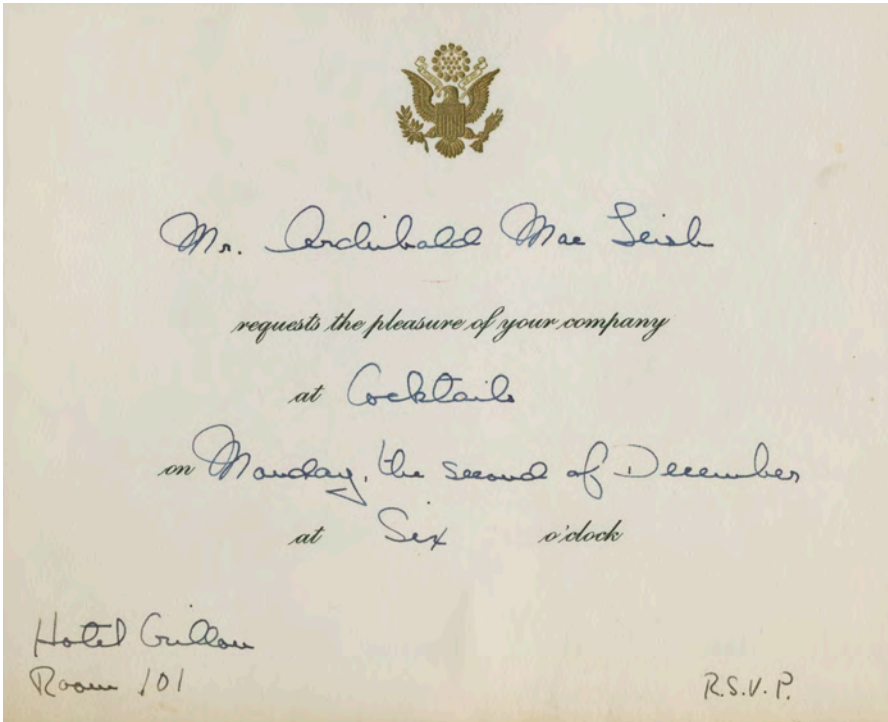 Mr. Archibald Mac Leish
requests the pleasure of your company
at Cocktails
on Monday, the second of December
at Six o'clock
Hotel Crillon
Room 101
R.S.V.P.